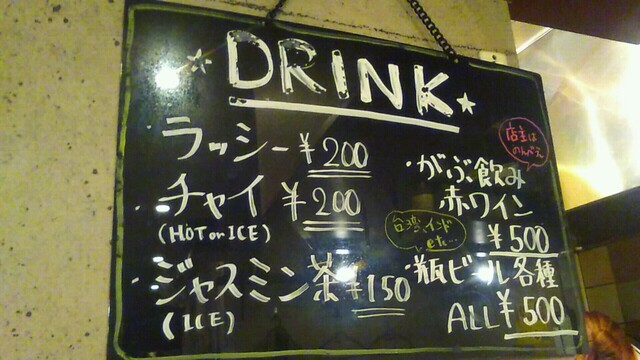 DRINK
・ラッシー ¥200
・チャイ ¥200
(HOT or ICE)
・ジャスミン茶 ¥150
(ICE)
店主は
のんべえ
・がぶ飲み
赤ワイン
¥500
台湾、インド
etc...
・瓶ビール各種
ALL ¥500